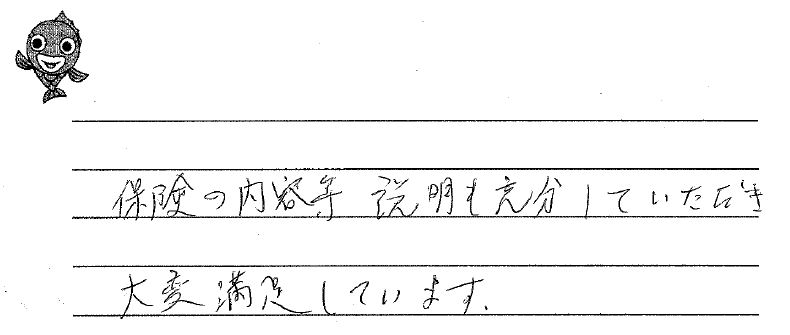 保険の内容等 説明も充分していただき
大変満足しています.